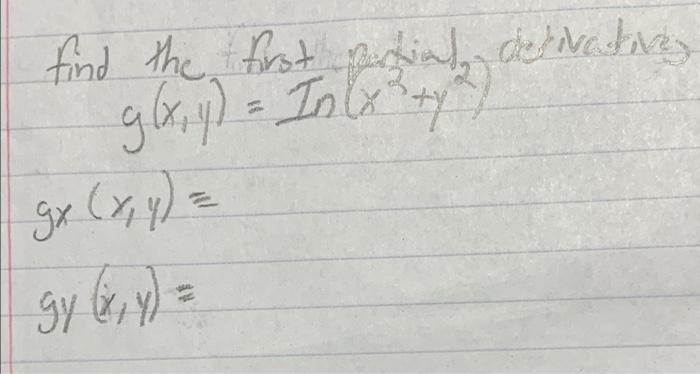 find the first partial derivatives
g(x,y) = In(x²+y²)
gx (x,y) =
gy (x,y) =